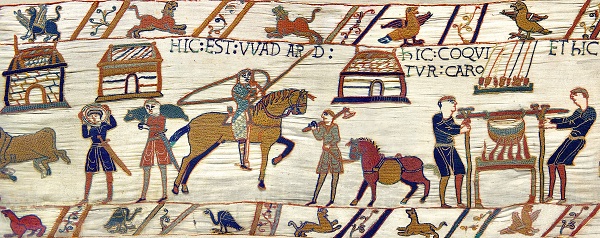 HIC:EST:VVADARD:
HIC:COQVI
TVR:CARO
ETHIC